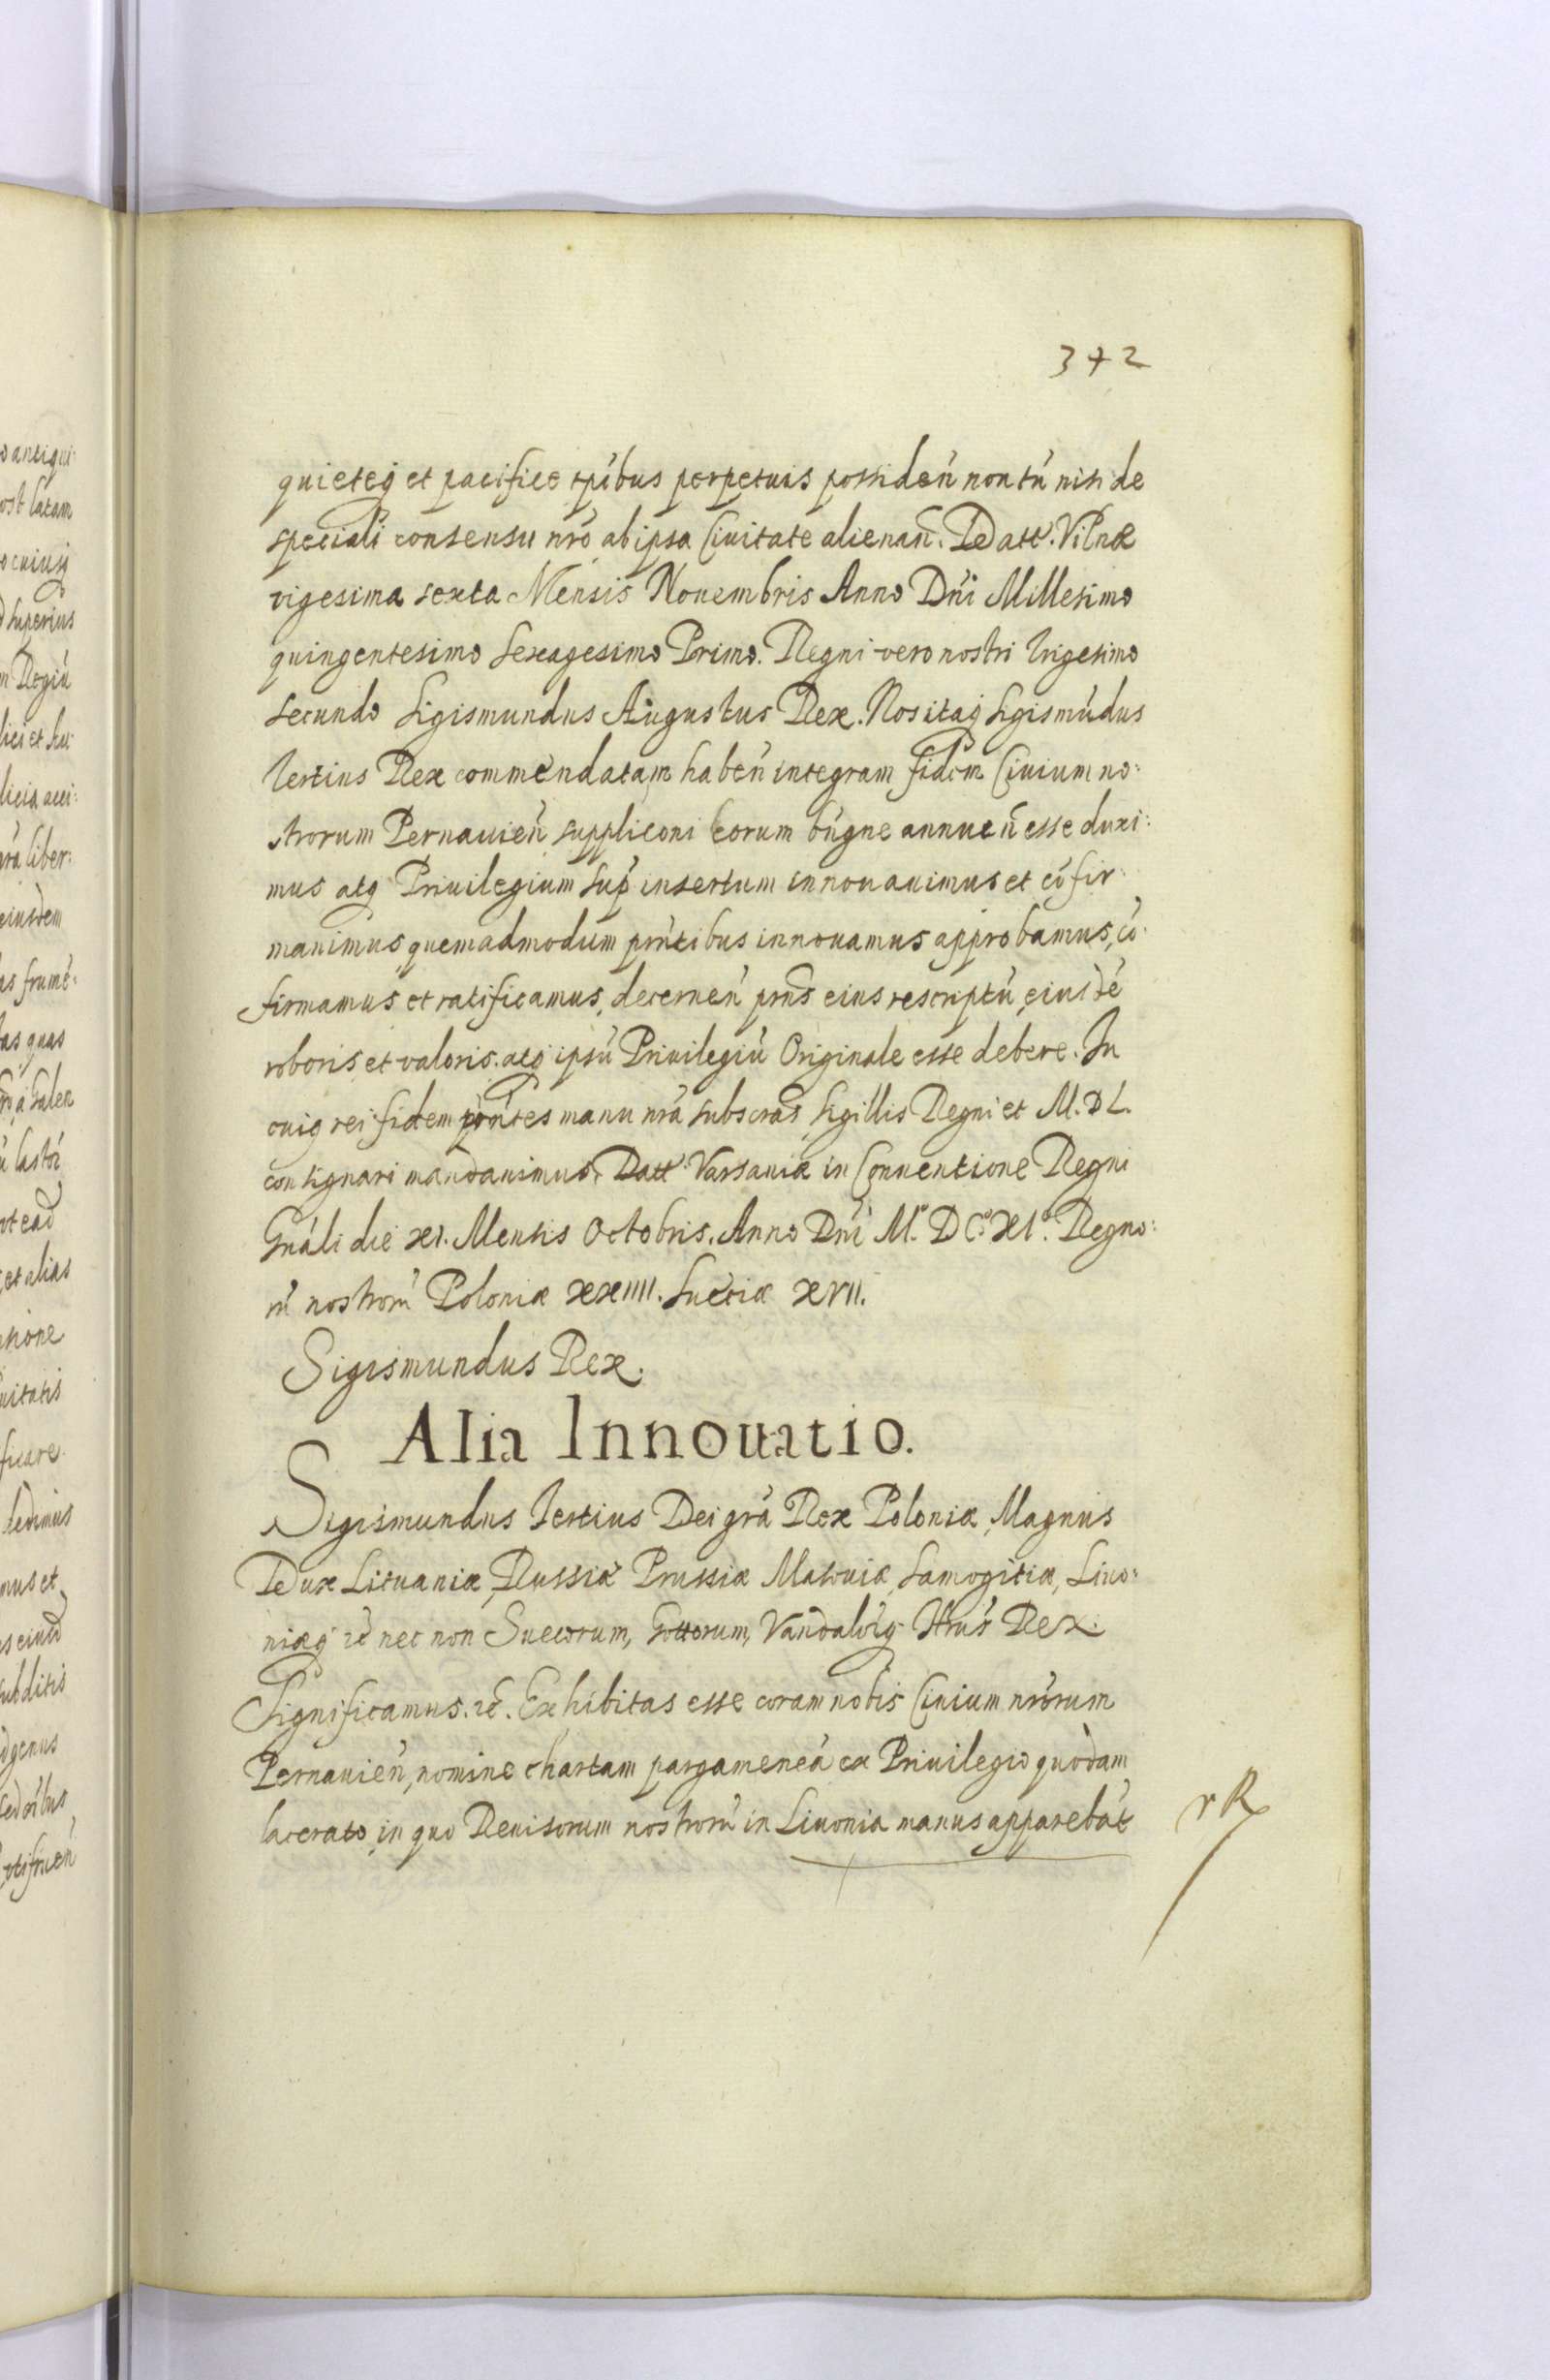 342
quieteq et pacifice tpībus perpetuis possideñ non tñ nisi de
speciali consensu nrō ab ipsa Ciuitate alienañ. Datt. Vilnæ
vigesima sexta Mensis Nouembris Anno Dñi Millesimo
quingentesimo Sexagesimo Primo. Regni vero nostri trigesimo
secundo Sigismundus Augustus Rex. Nos itaq Sigismūdus
tertius Rex commendatam habeñ integram fidem Ciuium no:
strorum Pernauieñ suppliconi eorum bñgne annueñ esse duxi:
mus atq Priuilegium sup insertum innouauimus et cōfir
mauimus quemadmodum pñtibus innouamus approbamus, cō:
firmamus et ratificamus, decerneñ pñs eius rescriptū, eiusdē
roboris et valoris atq ipsū Priuilegiū Originale esse debere. In
cuiq rei fidem pñtes manu nrā subscras Sigillis Regni et M. D L.
consignari mandauimus. Datt Varsauiæ in Conuentione Regni
Gnāli die xi. Mensis Octobris. Anno Dñi M.º D Cº XIº. Regno:
rū nostrorū Poloniæ xxiiii. Sueciæ xvii.
Sigismundus Rex.
Alia Innouatio.
Sigismundus Tertius Dei grā Rex Poloniæ, Magnus
Dux Lituaniæ, Russiæ Prussiæ Masouiæ, Samogitiæ, Liuo:
niæq rc nec non Suecorum, Gottorum, Vandalorq Hrus Rex.
Significamus. rc. Exhibitas esse coram nobis Ciuium nrōrum
Pernauieñ, nomine chartam pargameneā ex Priuilegio quodam
lacerato, in quo Reuisorum nostrorū in Liuonia manus apparebāt